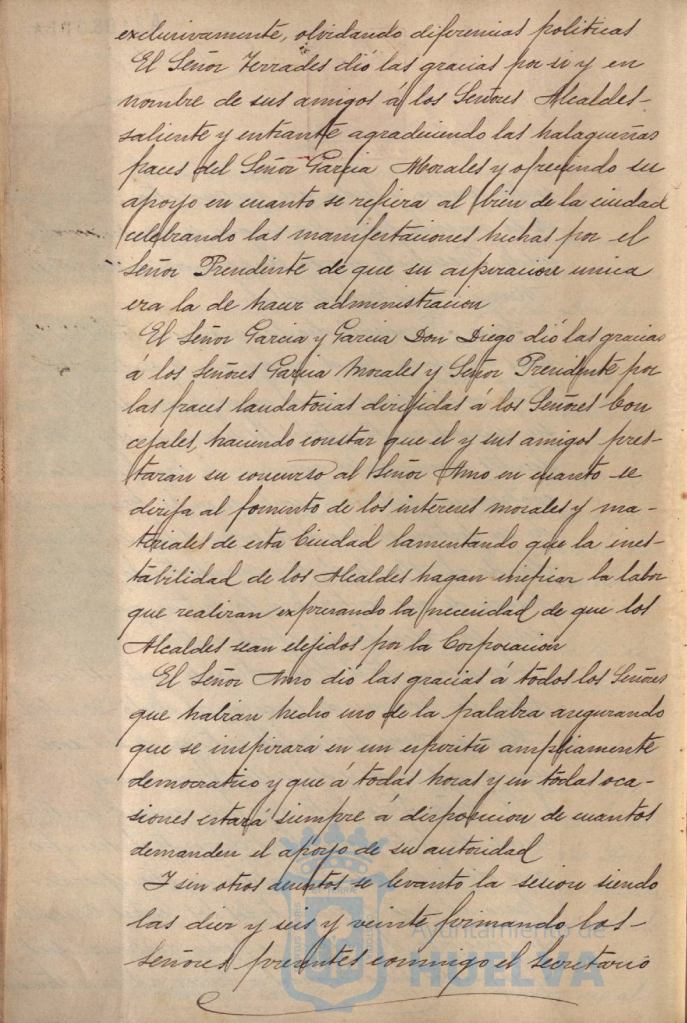 exclusivamente, olvidando diferencias politicas
El Señor Terrades dió las gracias por si y en
nombre de sus amigos á los Señores Alcaldes
saliente y entrante agradeciendo las halagueñas
fraces del Señor Garcia Morales y ofreciendo su
apoyo en cuanto se refiera al bien de la ciudad
celebrando las manifestaciones hechas por el
Señor Presidente de que su aspiracion unica
era la de hacer administracion
El Señor Garcia y Garcia Don Diego dió las gracias
á los Señores Garcia Morales y Señor Presidente por
las fraces laudatorias dirijidas á los Señores Con
cejales, haciendo constar que el y sus amigos pres-
taran su concurso al Señor Amo en cuanto se
dirija al fomento de los intereses morales y ma-
teriales de esta Ciudad lamentando que la ines-
tabilidad de los Alcaldes hagan ineficaz la labor
que realizan expresando la necesidad de que los
Alcaldes sean elejidos por la Corporacion
El Señor Amo dió las gracias á todos los Señores
que habian hecho uso de la palabra asegurando
que se inspirará en un espiritu ampliamente
democratico y que á todas horas y en todas oca-
siones estará siempre á disposicion de cuantos
demanden el apoyo de su autoridad
Y sin otros asuntos se levanto la sesion siendo
las diez y seis y veinte firmando los
Señores presentes conmigo el Secretario
Ayuntamiento de
HUELVA